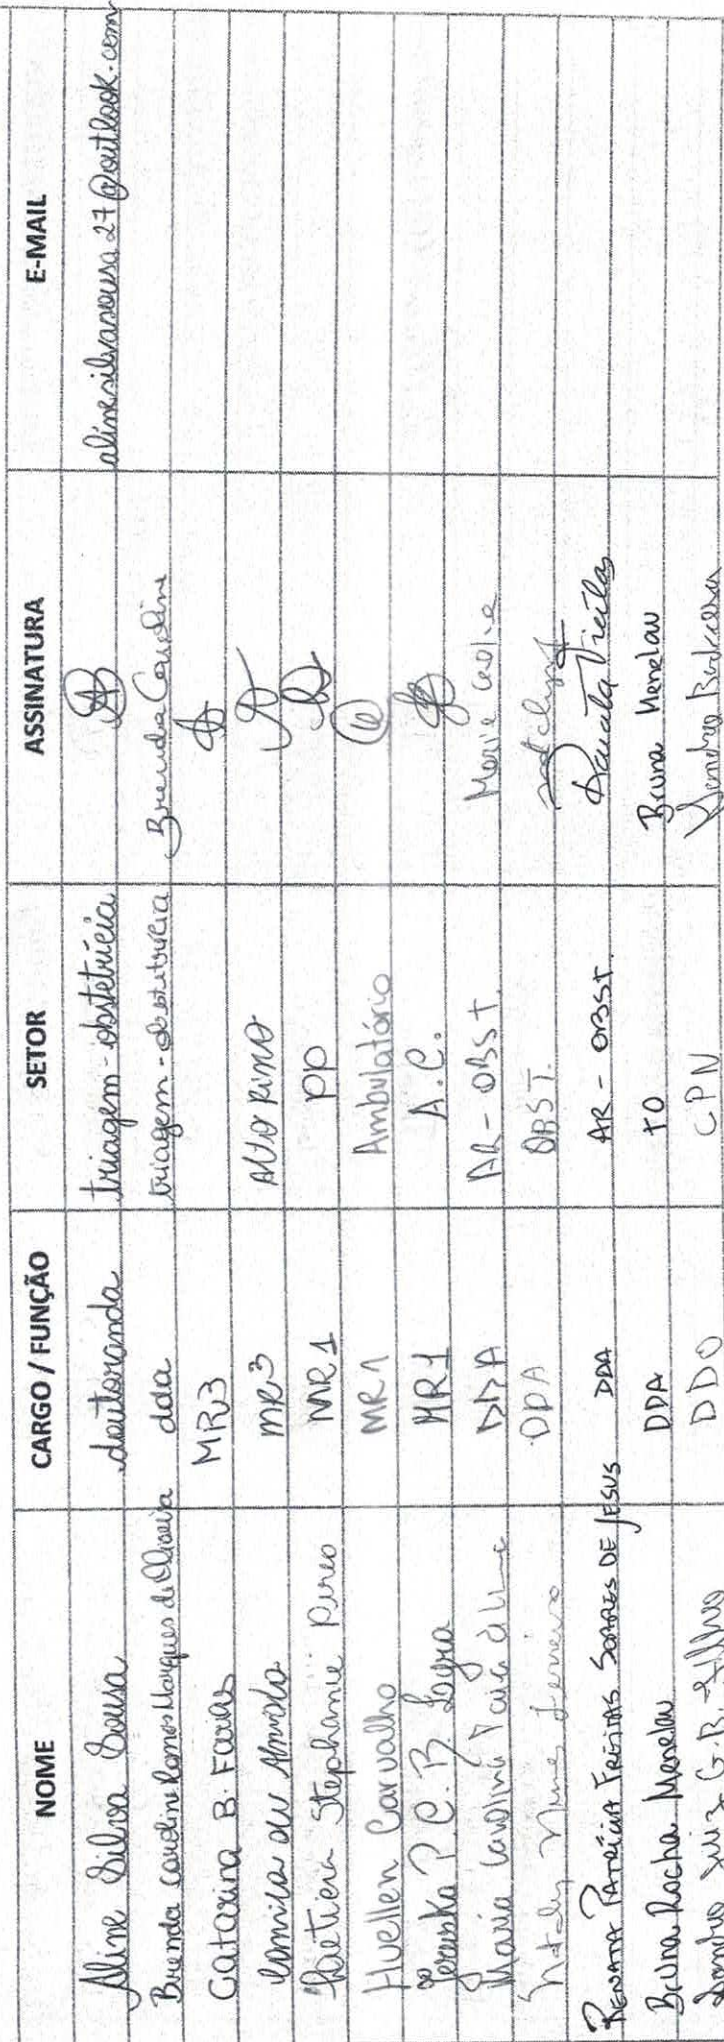 NOME CARGO / FUNÇÃO SETOR ASSINATURA E-MAIL
Aline Silva Sousa doutoranda triagem - obstetrícia alinesilvasousa27@outlook.com
Brenda Caroline Ramos Marques de Oliveira dda triagem - obstetrícia Brenda Caroline
Catarina B. Farias MR3
Camila de Almeida MR3 Alto Risco
Stephanie MR1 PP
Huellen Carvalho MR1 Ambulatório
P. C. B. Lyra MR1 A.C.
Maria Carolina DDA AR - OBST.
Nataly Nunes Ferreira DDA OBST.
RENATA PATRÍCIA FREITAS SOARES DE JESUS DDA AR - OBST. Renata Freitas
Bruna Rocha Menelau DDA TO Bruna Menelau
Luiz G. B. DDO CPN